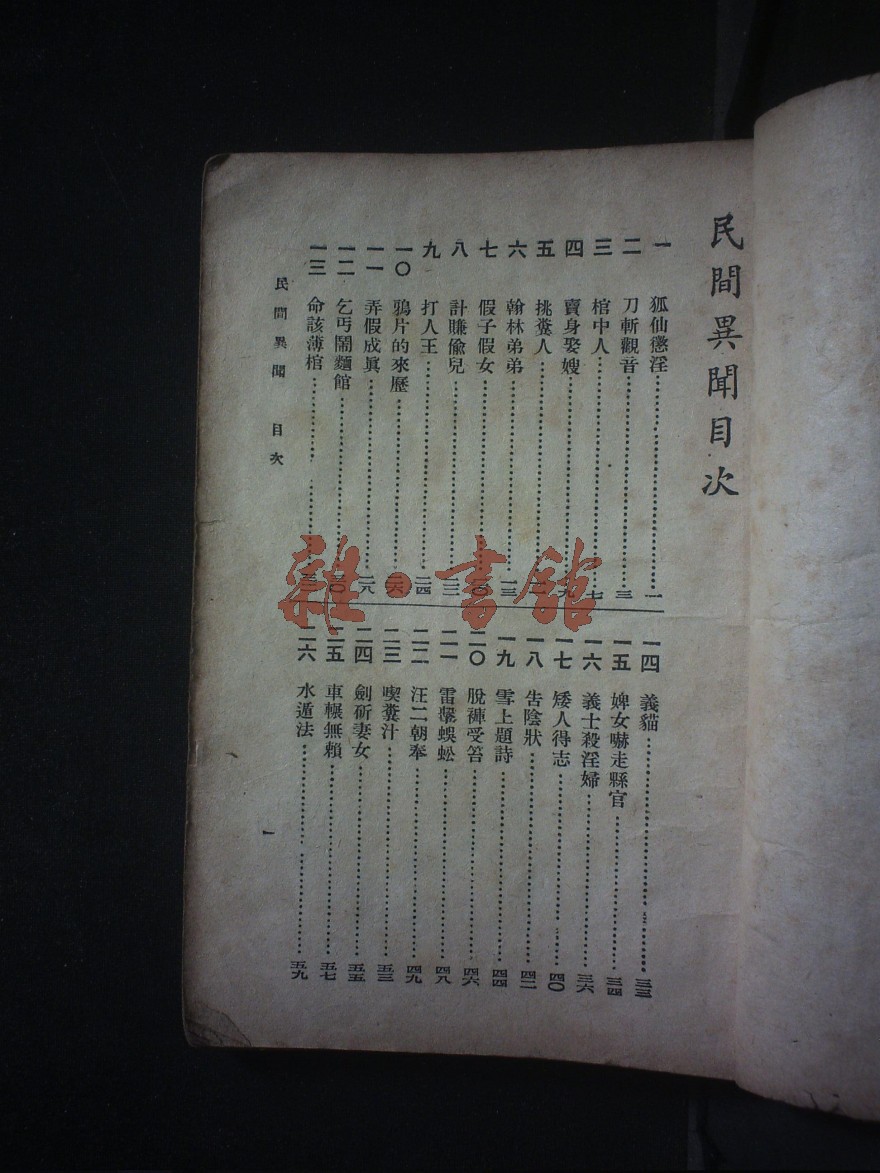 民間異聞目次
一 狐仙懲淫……一
二 刀斬觀音……三
三 棺中人……七
四 賣身娶嫂……九
五 挑糞人……
六 翰林弟弟……一三
七 假子假女……
八 計賺偸兒……
九 打人王……二四
一〇 鴉片的來歷……二六
一一 弄假成眞……二八
一二 乞丐鬧麵館……三〇
一三 命該薄棺……
一四 義貓……三三
一五 婢女嚇走縣官……三四
一六 義士殺淫婦……三六
一七 矮人得志……四〇
一八 告陰狀……四二
一九 雪上題詩……四四
二〇 脫褲受笞……四六
二一 雷擊蜈蚣……四八
二二 汪二朝奉……四九
二三 喫糞汁……五三
二四 劍斫妻女……五五
二五 車輾無賴……五七
二六 水遁法……五九
民間異聞 目次
一
雜·書館